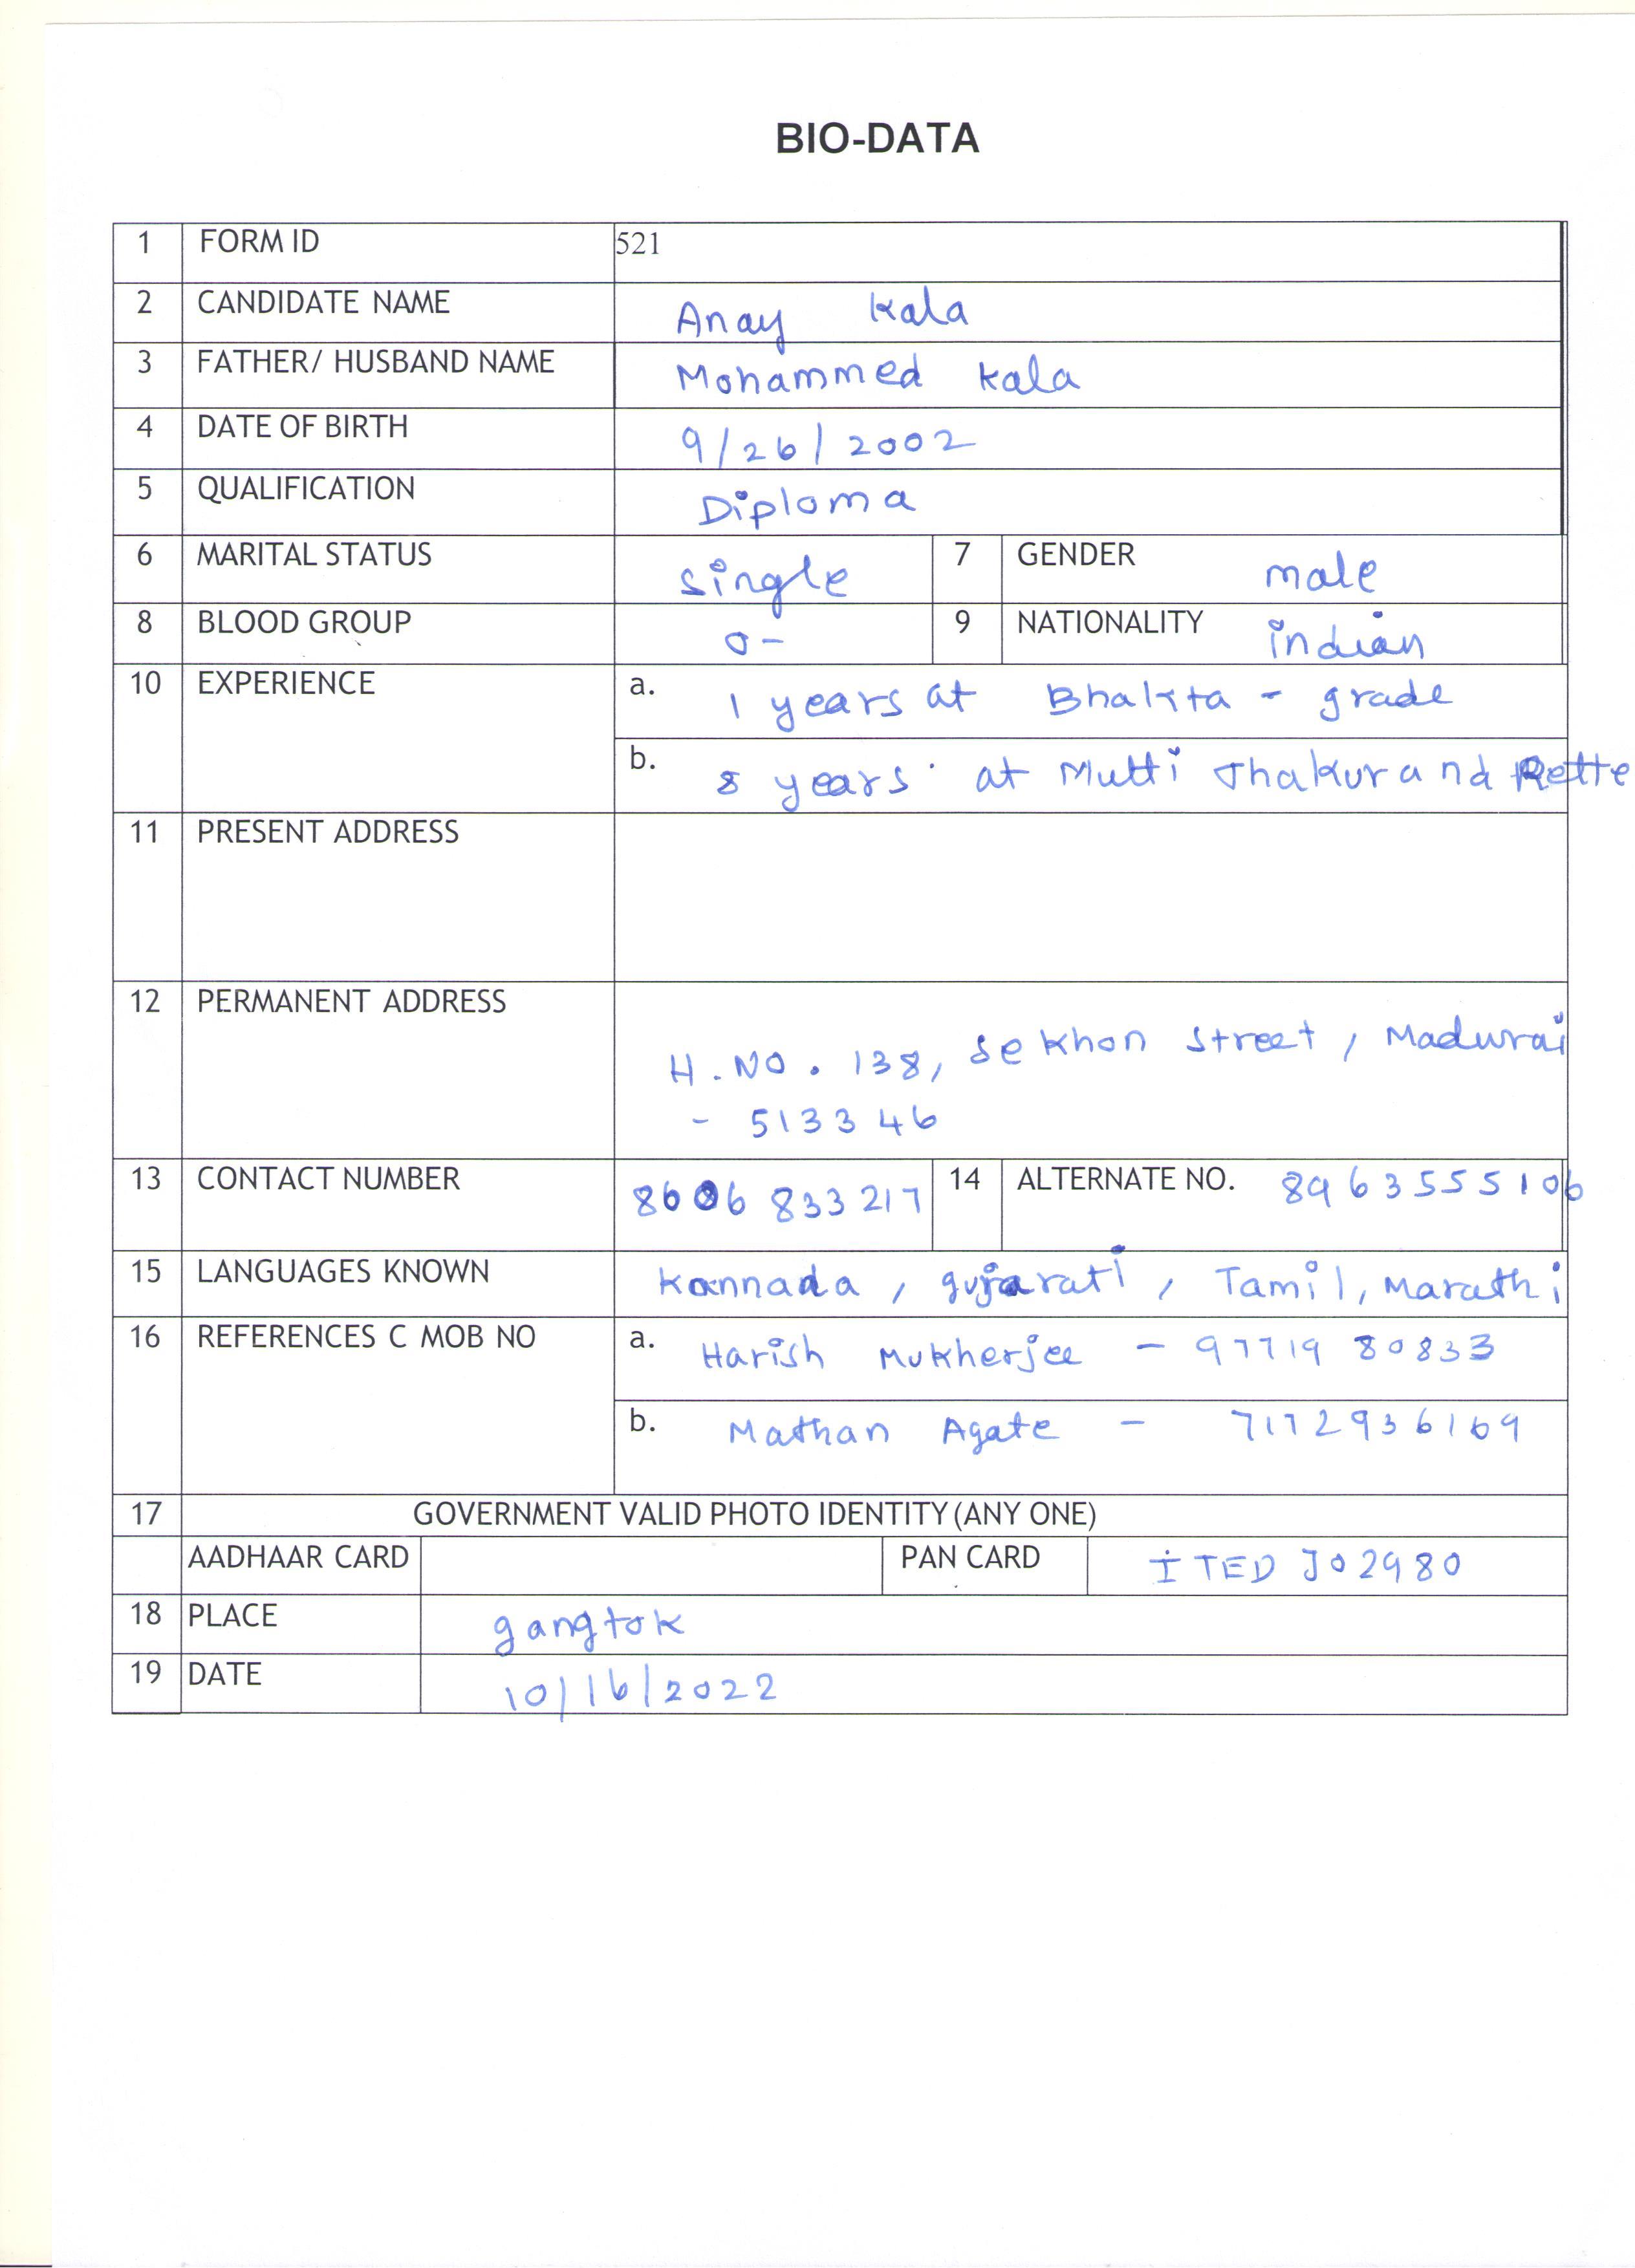 BIO-DATA
1 FORM ID 521
2 CANDIDATE NAME Anay Kala
3 FATHER/ HUSBAND NAME Mohammed Kala
4 DATE OF BIRTH 9/26/2002
5 QUALIFICATION Diploma
6 MARITAL STATUS single 7 GENDER male
8 BLOOD GROUP O- 9 NATIONALITY indian
10 EXPERIENCE a. 1 years at Bhakta - grade
b. 8 years at Mutti Thakur and
11 PRESENT ADDRESS
12 PERMANENT ADDRESS
H.NO. 138, Sekhon Street, Madurai
- 513346
13 CONTACT NUMBER 8606833217 14 ALTERNATE NO. 89635555106
15 LANGUAGES KNOWN Kannada, gujarati, Tamil, Marathi
16 REFERENCES C MOB NO a. Harish Mukherjee - 9771980833
b. Mathan Agate - 7172936169
17 GOVERNMENT VALID PHOTO IDENTITY (ANY ONE)
AADHAAR CARD PAN CARD ITEDJ02980
18 PLACE gangtok
19 DATE 10/16/2022